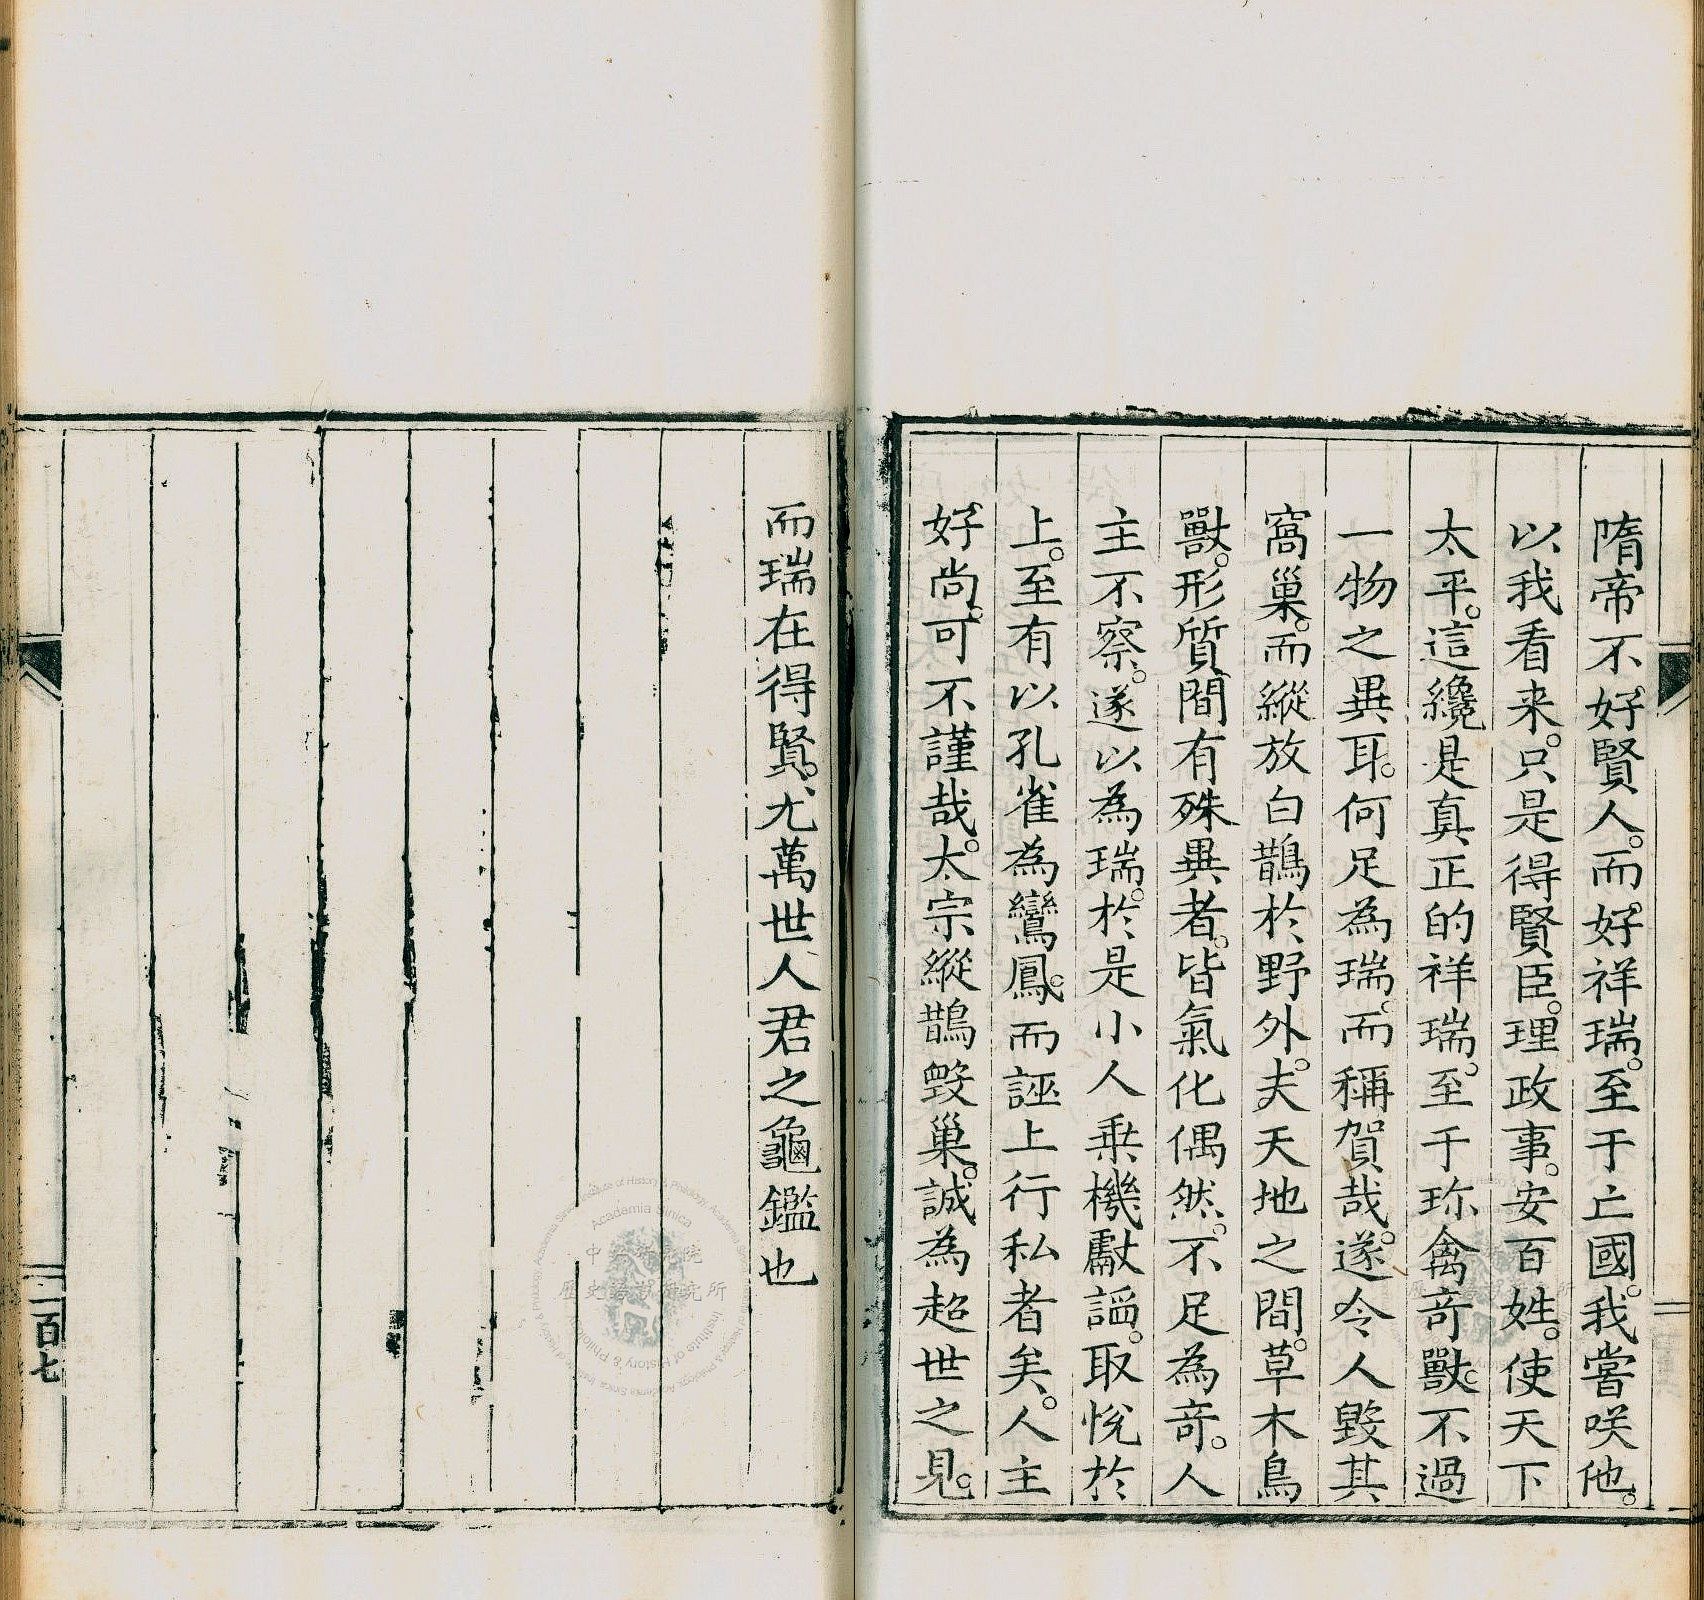 隋帝不好賢人。而好祥瑞。至于亡國。我嘗咲他。
以我看来。只是得賢臣。理政事。安百姓。使天下
太平。這纔是真正的祥瑞。至于珎禽竒獸。不過
一物之異耳。何足為瑞。而稱賀哉。遂令人毀其
窩巢。而縱放白鵲於野外。夫天地之間。草木鳥
獸。形質間有殊異者。皆氣化偶然。不足為竒。人
主不察。遂以為瑞。於是小人乗機獻謟。取悅於
上。至有以孔雀為鸞鳳。而誣上行私者矣。人主
好尚。可不謹哉。太宗縱鵲毀巢。誠為超世之見。
而瑞在得賢。尤萬世人君之龜鑑也
二百七
中央研究院
歷史語言研究所
Academia Sinica
Institute of History & Philology